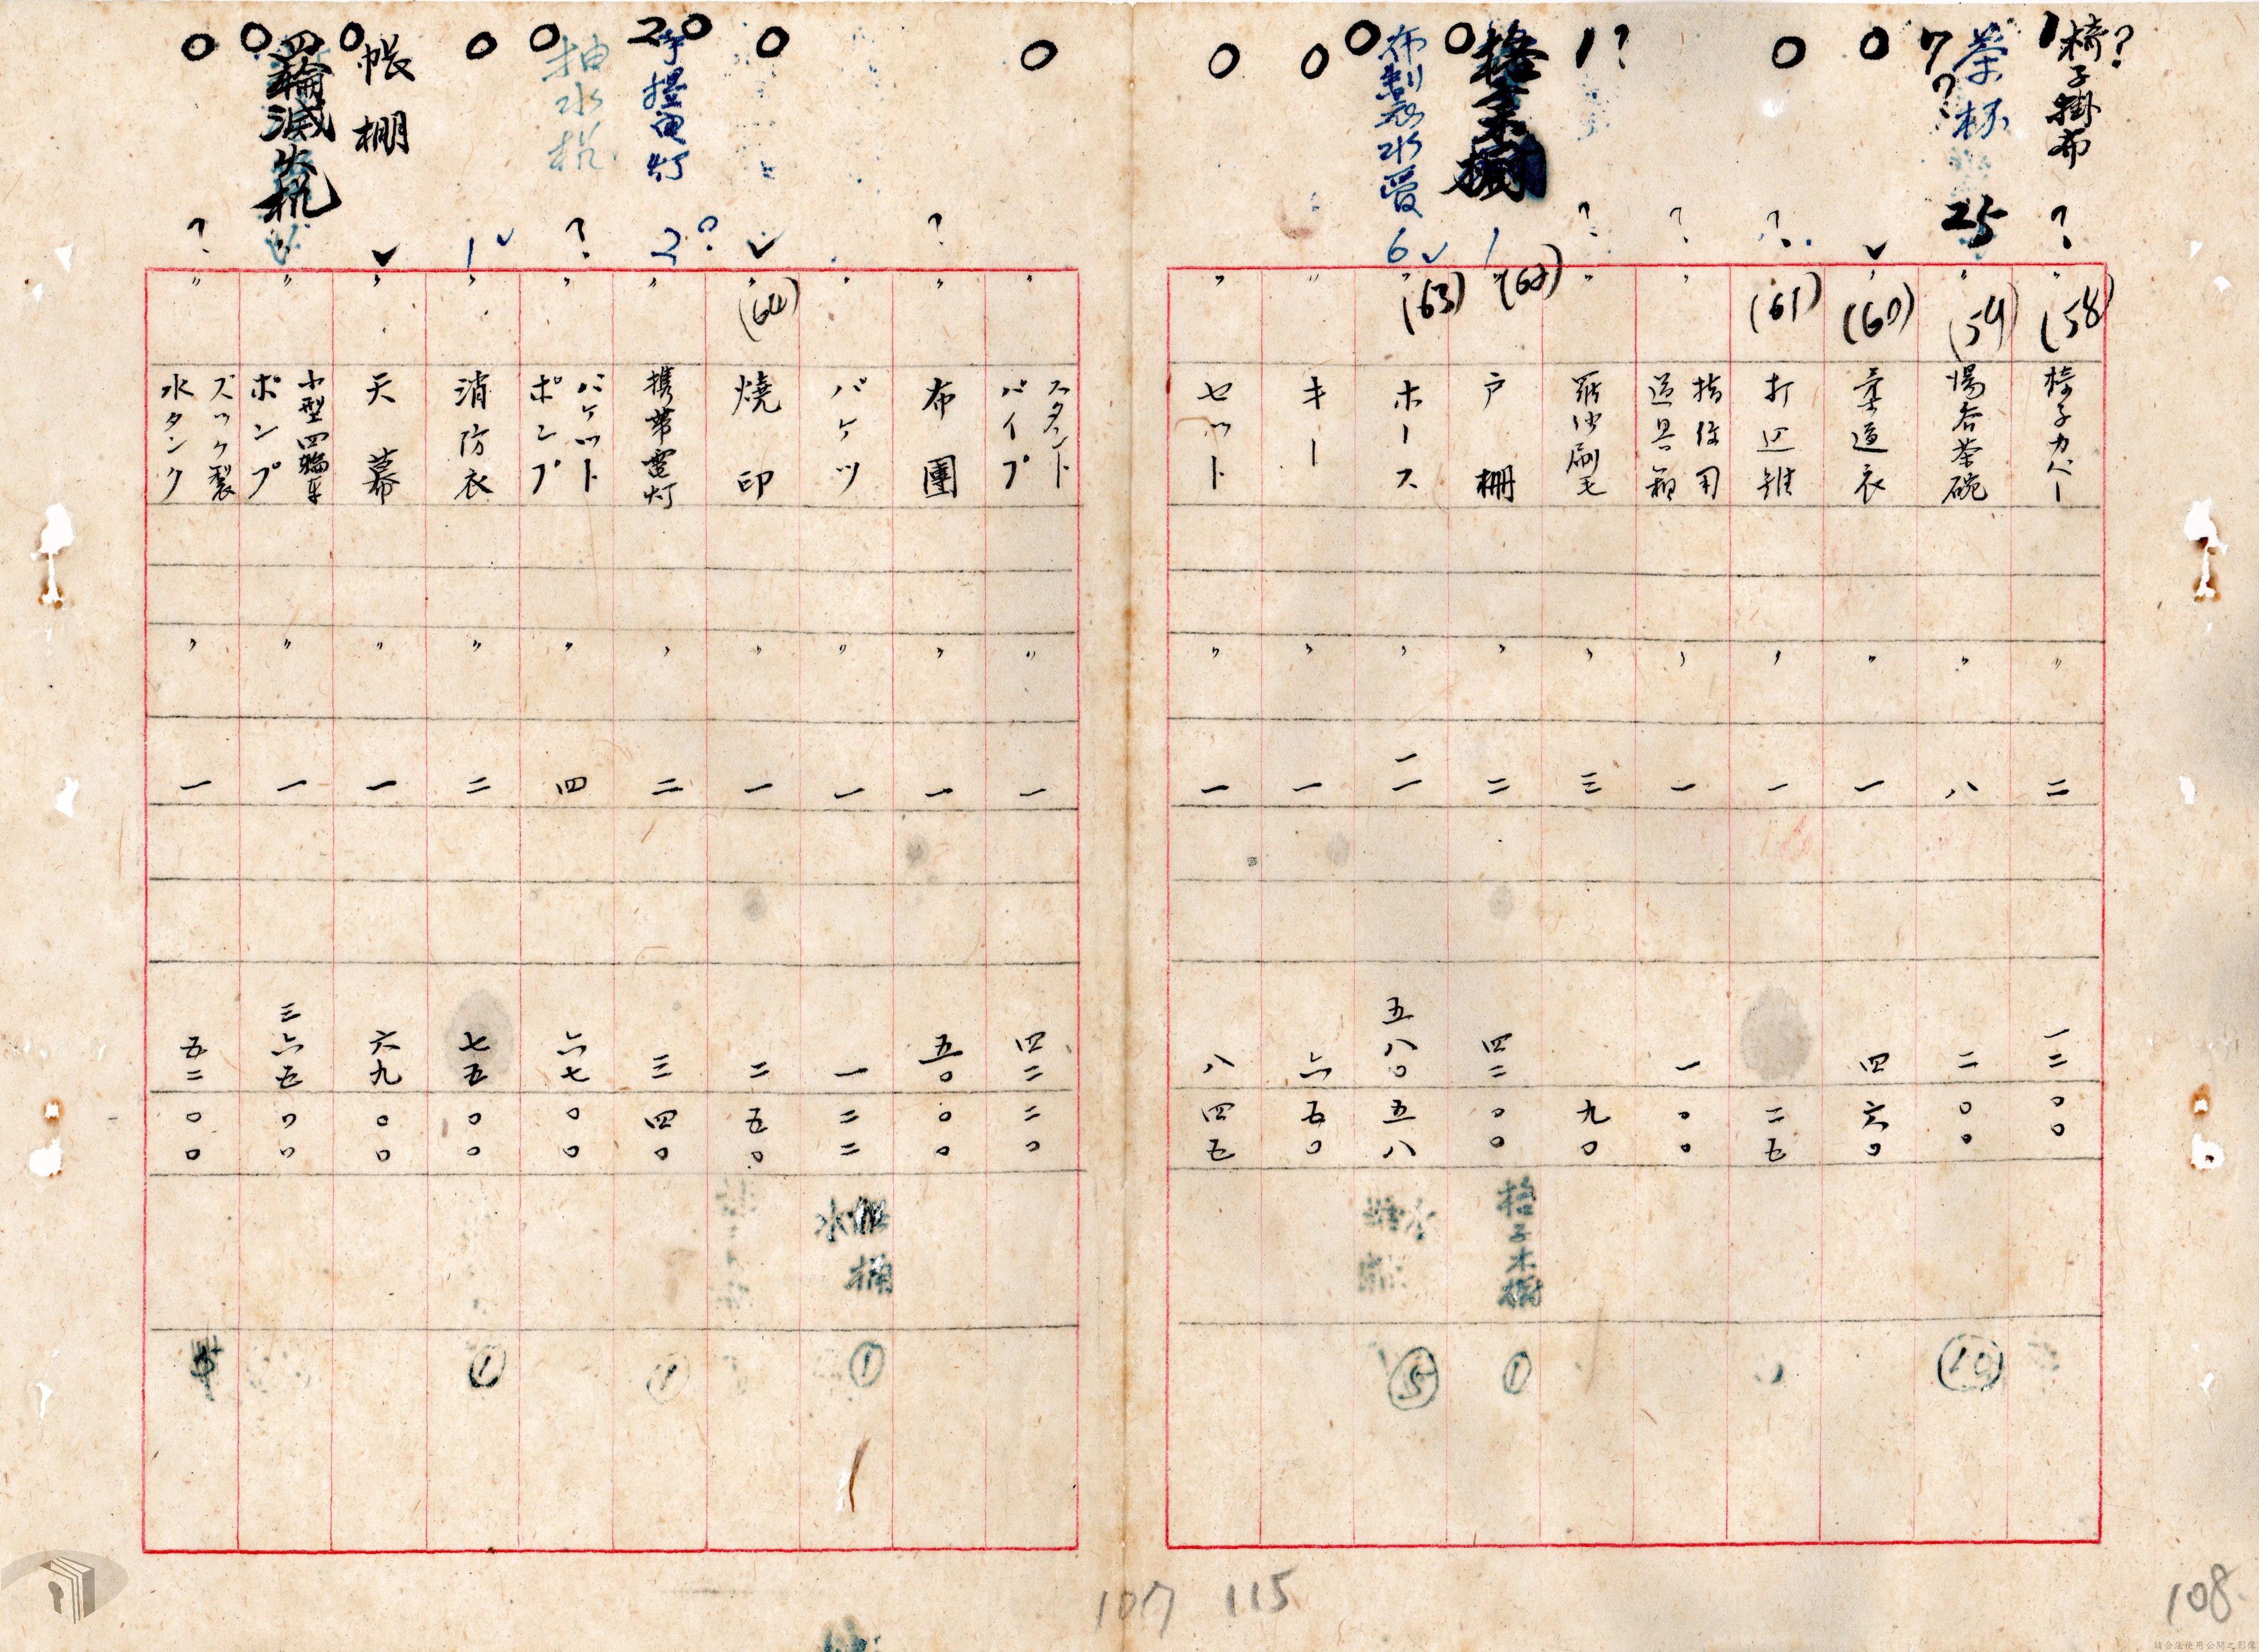 椅子掛布
1?
?
〃
(58)
椅子カバー
〃
二
一二
〇〇
茶杯
7?
25
〃
(59)
湯呑茶碗
〃
八
二
〇〇
10
0
✓
〃
(60)
柔道衣
〃
一
四
六〇
0
?
(61)
打込錐
〃
一
二五
?
〃
指紋用
道具箱
〃
一
一
〇〇
1?
?
〃
羅沙刷毛
〃
三
九〇
0
1
〃
(62)
戸棚
〃
二
四二
〇〇
格子木櫥
1
布製製水管
0
6✓
〃
(63)
ホース
〃
一一
五八〇
五八
5
0
〃
キー
〃
一
六
五〇
0
〃
セット
〃
一
八
四五
0
〃
スタンド
パイプ
〃
一
四二
二〇
?
〃
布團
〃
一
五〇
〇〇
〃
バケツ
〃
一
一
二二
水桶
1
0
✓
〃
(64)
燒印
〃
一
二
五〇
手提电灯
20
2?
〃
携帯電灯
〃
二
三
四〇
1
抽水机
0
?
〃
バケット
ポンプ
〃
四
六七
〇〇
0
1✓
〃
消防衣
〃
二
七五
〇〇
1
帳棚
0
✓
〃
天幕
〃
一
六九
〇〇
四輪滅火机
0
✓
〃
小型四輪車
ポンプ
〃
一
三六五
〇〇
0
?
〃
ズック製
水タンク
〃
一
五二
〇〇
107
115
108
請合法使用公開之影像